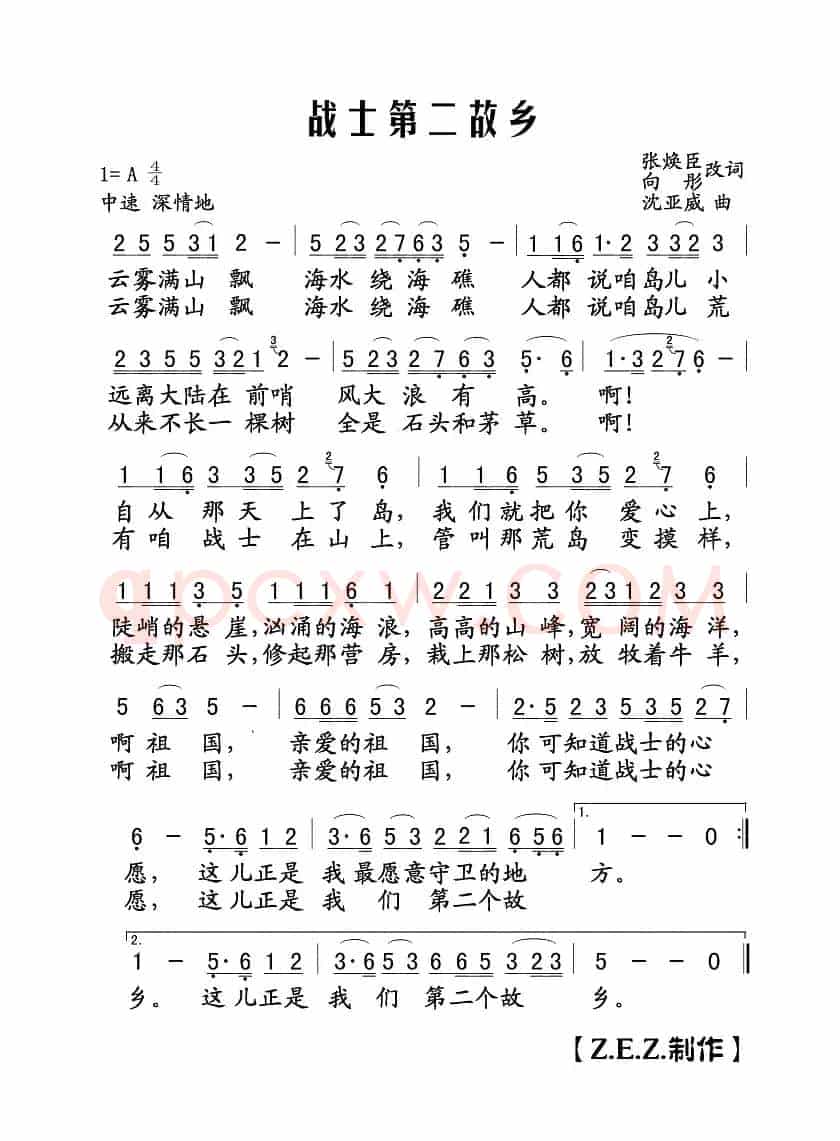 战士第二故乡
1= A 4/4
中速 深情地
张焕臣
向 彤 改词
沈亚威 曲
2 5 5 31 2 － | 5 23 2763 5 － | 1 116 1· 2 3 332 3 |
云雾满山 飘 海水 绕 海 礁 人都 说咱岛儿 小
云雾满山 飘 海水 绕 海 礁 人都 说咱岛儿 荒
2355 321 3 2 － | 523 2763 5· 6 | 1·3 2 2 76 － |
远离大陆在 前哨 风大 浪 有 高。 啊！
从来不长一 棵树 全是 石头和茅 草。 啊！
1 116 3 335 2 2 7 6 | 1 116 5 335 2 2 7 6 |
自从 那天 上了岛， 我们就把你 爱心上，
有咱 战士 在山上， 管叫那荒岛 变摸样，
1113 5 1116 1 | 2213 3 2312 3 3 |
陡峭的悬 崖，汹涌的海 浪，高高的山 峰，宽 阔的海 洋，
搬走那石 头，修起那营 房，栽上那松 树，放 牧着牛 羊，
qpcxw.COM
5 63 5 － | 666553 2 － | 2·5 23 535 27 |
啊祖 国， 亲爱的祖 国， 你可知道战士的心
啊祖 国， 亲爱的祖 国， 你可知道战士的心
1.
6 － 5·6 12 | 3·6 53 221 656 | 1 － － 0 :‖
愿， 这儿正是 我最愿意守卫的地 方。
愿， 这儿正是 我 们 第二个故
2.
1 － 5·6 12 | 3·6 5356 65 323 | 5 － － 0 ‖
乡。 这儿正是 我 们 第二个故 乡。
【Z.E.Z.制作】